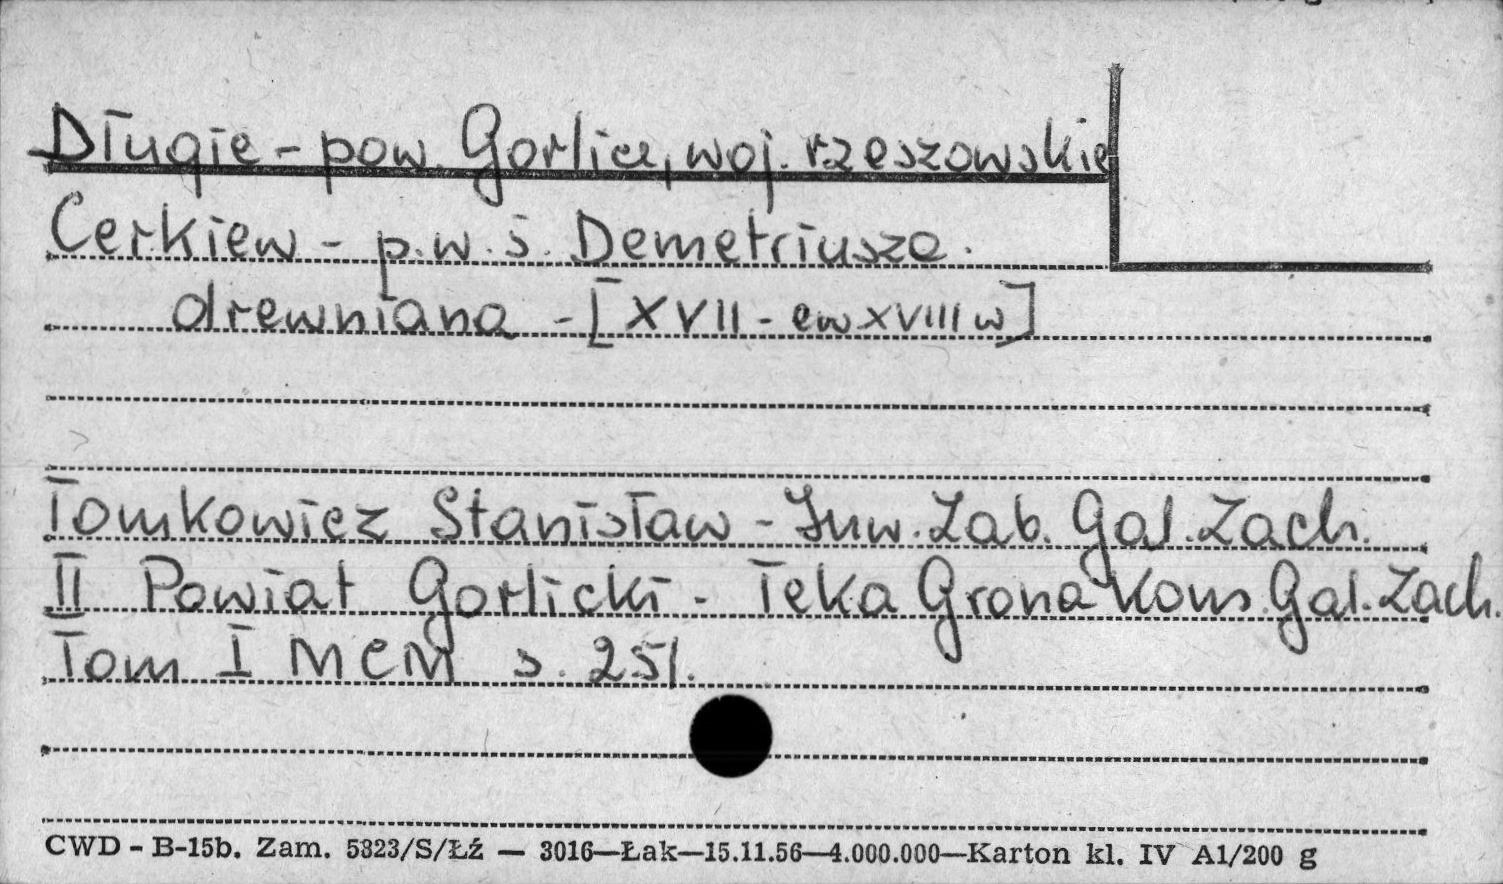 Długie - pow. Gorlice, woj. rzeszowskie
Cerkiew - p.w. ś. Demetriusza.
drewniana - [XVII - ew XVIII w]
Tomkowicz Stanisław - Inw. Zab. Gal. Zach.
II Powiat Gorlicki - Teka Grona Kons. Gal. Zach.
Tom I MCM s. 251.
CWD - B-15b. Zam. 5823/S/Łź — 3016—Łak—15.11.56—4.000.000—Karton kl. IV A1/200 g